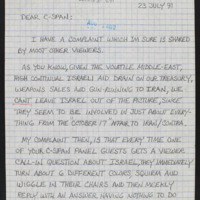 23 JULY 8
DEAR C-SPAN:
I HAVE A COMPLAINT WHICH IM SURE IS SHARED
BY MOST OTHER VIEWERS.
AS YOU KNOW, GIVEN THE VOLATILE MIDDLE-EAST,
HIGH CONTINUAL ISRAELI AID DRAIN ON OUR TREASURY,
WEAPONS SALES AND GUN-RUNNING TO IRAN, WE
CANT LEAVE ISRAEL OUT OF THE PICTURE, SINCE
THEY SEEM TO BE INVOLVED IN JUST ABOUT EVERY-
THING FROM THE OCTOBER 17 AFFAIR TO IRAN/CONTRA.
MY COMPLAINT THEN, IS THAT EVERY TIME ONE
OF YOUR C-SPAN PANEL GUESTS GETS A VIEWER
CALL-IN QUESTION ABOUT ISRAEL, THEY IMMEDIATELY
TURN ABOUT 6 DIFFERENT COLORS, SQUIRM AND
WIGGLE IN THEIR CHAIRS AND THEN MEEKLY
REPLY WITH AN ANSWER HAVING NOTHING TO DO